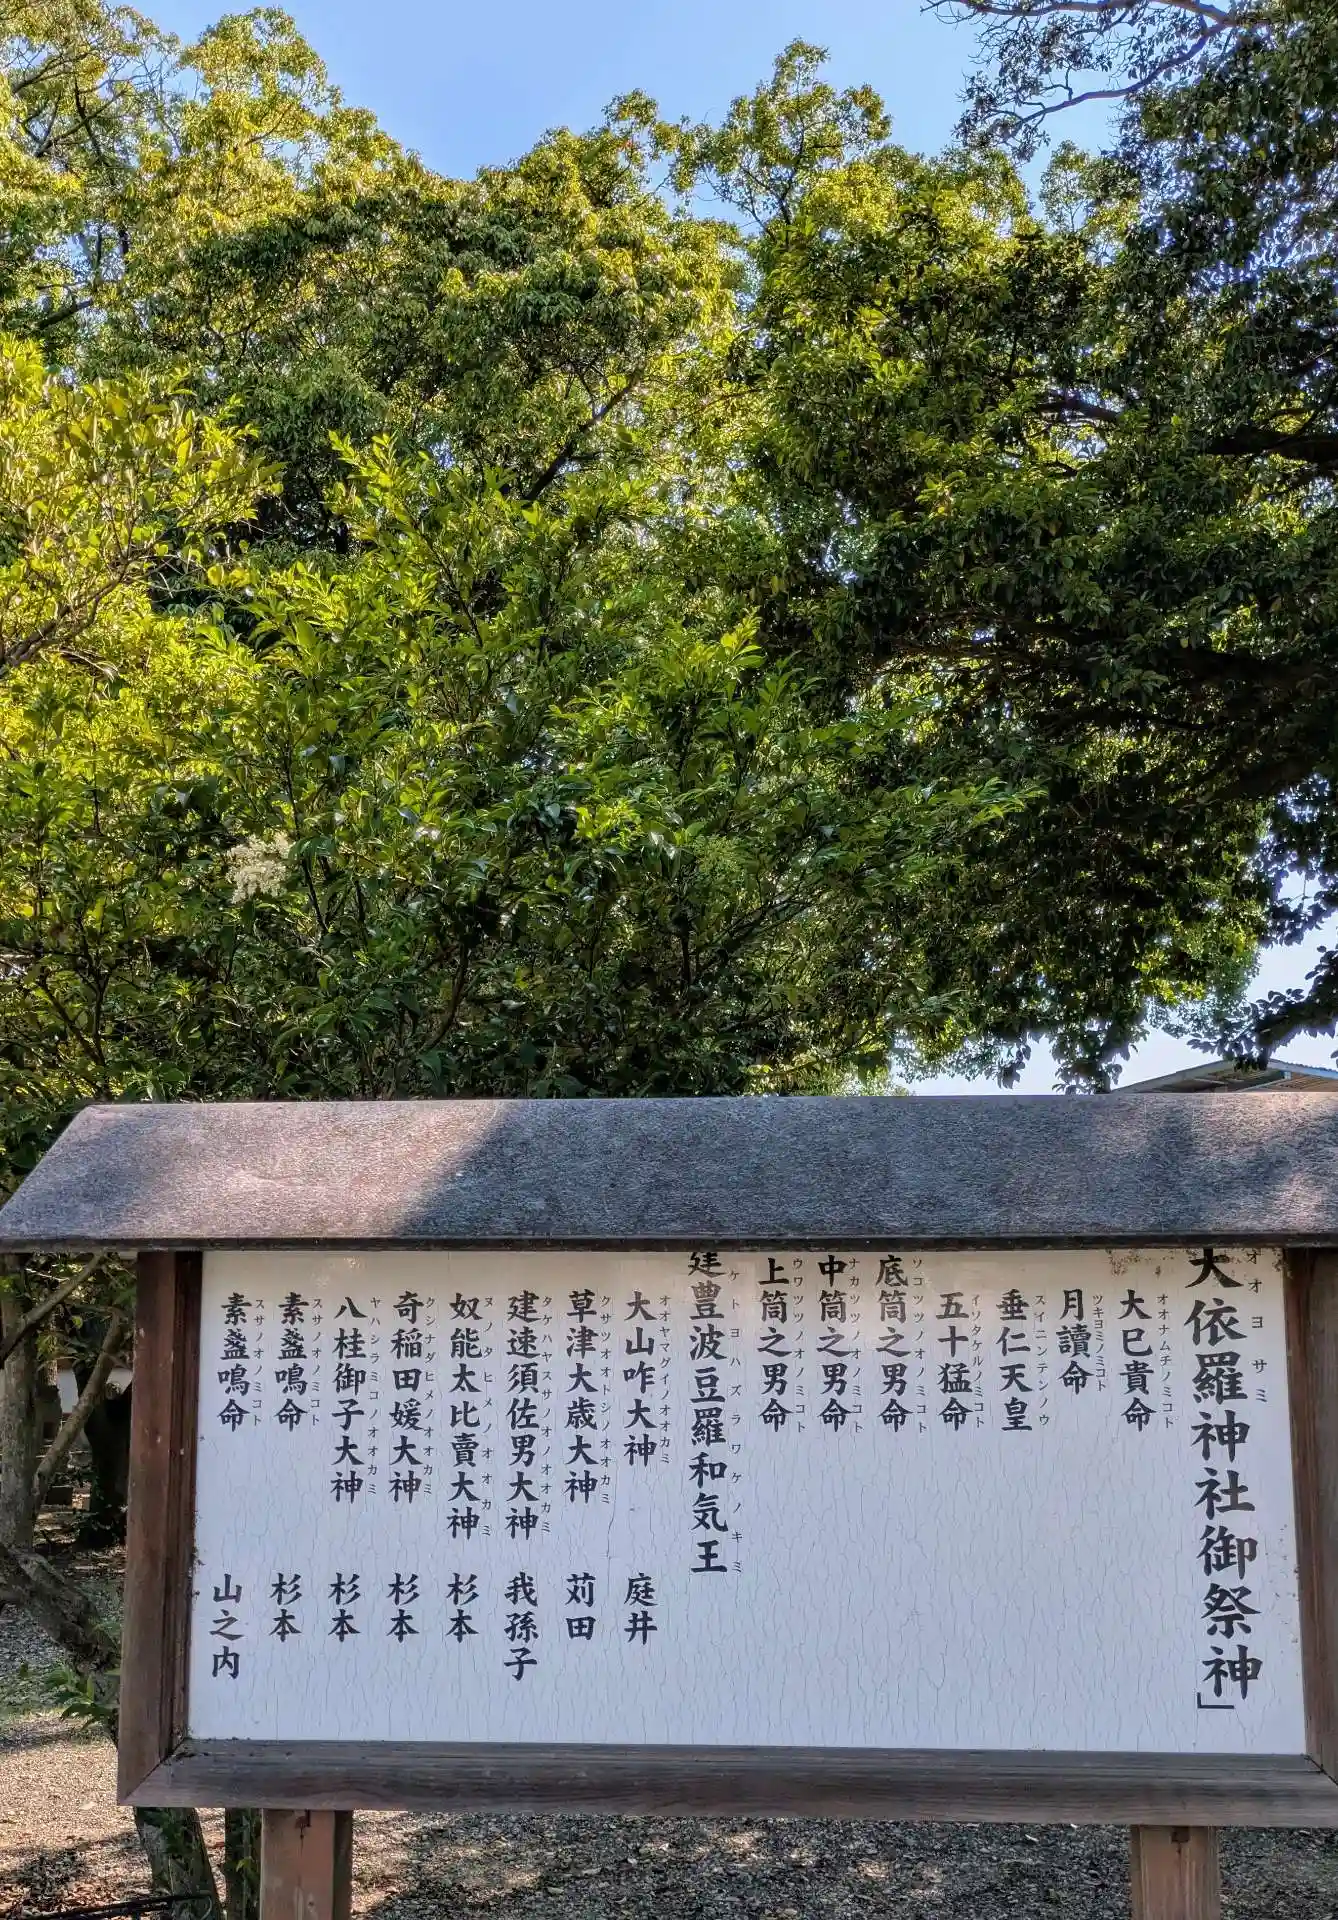 大依羅神社御祭神」
オオヨサミ
大巳貴命
オオナムチノミコト
月讀命
ツキヨミノミコト
垂仁天皇
スイニンテンノウ
五十猛命
イソタケルノミコト
底筒之男命
ソコツツノオノミコト
中筒之男命
ナカツツノオノミコト
上筒之男命
ウワツツノオノミコト
建豊波豆羅和気王
ケトヨハズラワケノキミ
大山咋大神 庭井
オオヤマグイノオオカミ
草津大歳大神 苅田
クサツオオトシノオオカミ
建速須佐男大神 我孫子
タケハヤスサノオノオオカミ
奴能太比賣大神 杉本
ヌノタヒメノオオカミ
奇稲田媛大神 杉本
クシナダヒメノオオカミ
八桂御子大神 杉本
ヤハシラミコノオオカミ
素盞鳴命 杉本
スサノオノミコト
素盞鳴命 山之内
スサノオノミコト